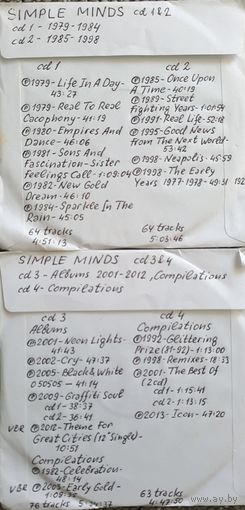 SIMPLE MINDS cd 1&2
cd 1 - 1979-1984
cd 2 - 1985-1998
cd 1
℗1979-Life In A Day-
43:27
℗1979-Real To Real
Cacophony-41:19
℗1980-Empires And
Dance-46:06
℗1981-Sons And
Fascination-Sister
Feelings Call-1:09:04
℗1982-New Gold
Dream-46:10
℗1984-Sparkle In The
Rain-45:05
64 tracks
4:51:13
cd 2
℗1985-Once Upon
A Time-40:19
℗1989-Street
Fighting Years-1:01:54
℗1991-Real Life-52:18
℗1995-Good News
From The Next World-
53:42
℗1998-Neapolis-45:59
℗1998-The Early
Years 1977-1978-49:31 192
64 tracks
5:03:46
SIMPLE MINDS cd 3&4
cd 3 - Albums 2001-2012, Compilations
cd 4 - Compilations
cd 3
Albums
℗2001-Neon Lights-
41:43
℗2002-Cry-47:37
℗2005-Black & White
050505-41:14
℗2009-Graffiti Soul
cd1-38:37
cd2-36:41
VBR ℗2012-Theme For
Great Cities (12"Single)-
10:51
Compilations
℗1982-Celebration-
48:14
VBR ℗2003-Early Gold-
76 tracks
cd 4
Compilations
℗1992-Glittering
Prize (81-92)-1:13:00
℗1998-Remixes-18:33
℗2001-The Best Of
(2cd)
cd1-1:15:41
cd2-1:13:15
℗2013-Icon-47:20
63 tracks
www.ay.by